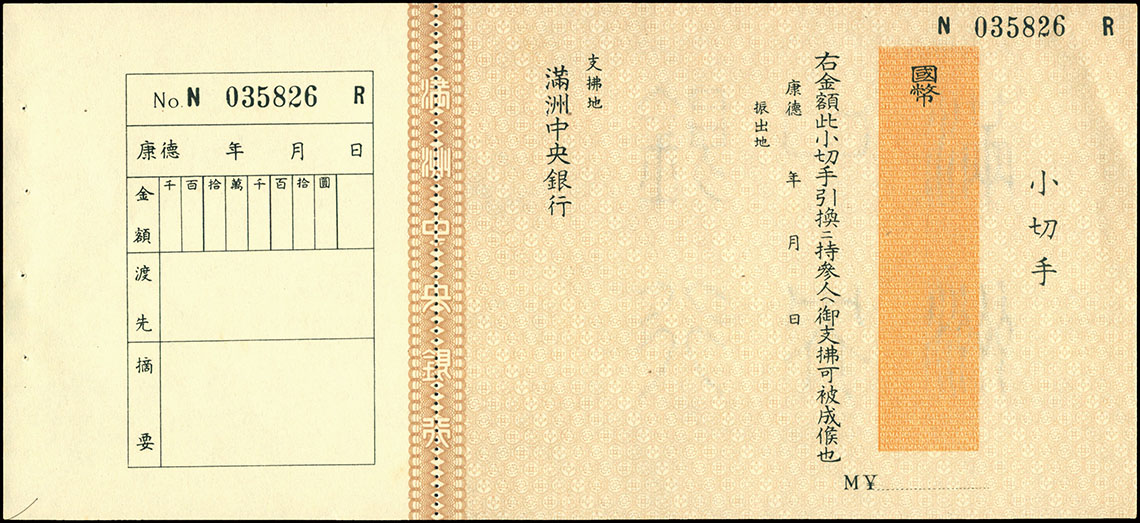 N 035826 R
小切手
國幣
右金額此小切手引換ニ持參人ヘ御支拂可被成候也
康德 年 月 日
振出地
支拂地
滿洲中央銀行
M¥
滿洲中央銀行
No. N 035826 R
康德 年 月 日
金額 千 百 拾 萬 千 百 拾 圓
渡先
摘要